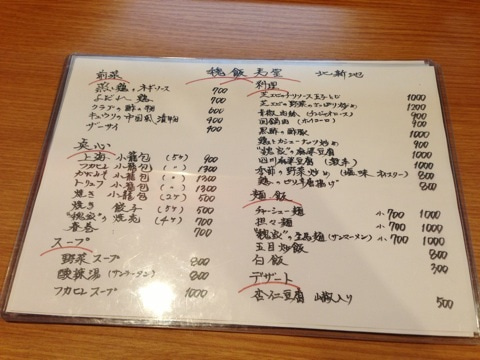 飯 美 堂 北新地
前菜
蒸し鶏のネギソース 700
よだれ鶏 700
クラゲの酢の物 800
キュウリの中国風漬物 400
ザーサイ 400
点心
上海小籠包 (5ヶ) 900
フカヒレ小籠包 (〃) 1300
カニみそ小籠包 (〃) 1300
トリュフ小籠包 (〃) 1300
焼き小籠包 (2ヶ) 500
焼き餃子 (5ヶ) 500
の焼売 (4ヶ) 700
春巻 700
スープ
野菜スープ 800
酸辣湯 (サンラータン) 800
フカヒレスープ 1000
料理
芝エビのチリソース 玉子とじ 1000
芝エビの野菜 1200
青椒肉絲 (チンジャオロース) 900
回鍋肉 (ホイコーロ) 900
黒酢の酢豚 1000
鶏とカシューナッツ炒め 1000
の麻婆豆腐 1000
四川麻婆豆腐 (激辛) 1000
季節の野菜炒め (塩味 オイスター) 800
鶏の 揚げ 800
麺 飯
チャーシュー麺 小 700 1000
担々麺 小 700 1000
の 麺 (サンマーメン) 小 700 1000
五目炒飯 800
白飯 300
デザート
杏仁豆腐 山椒入り 500